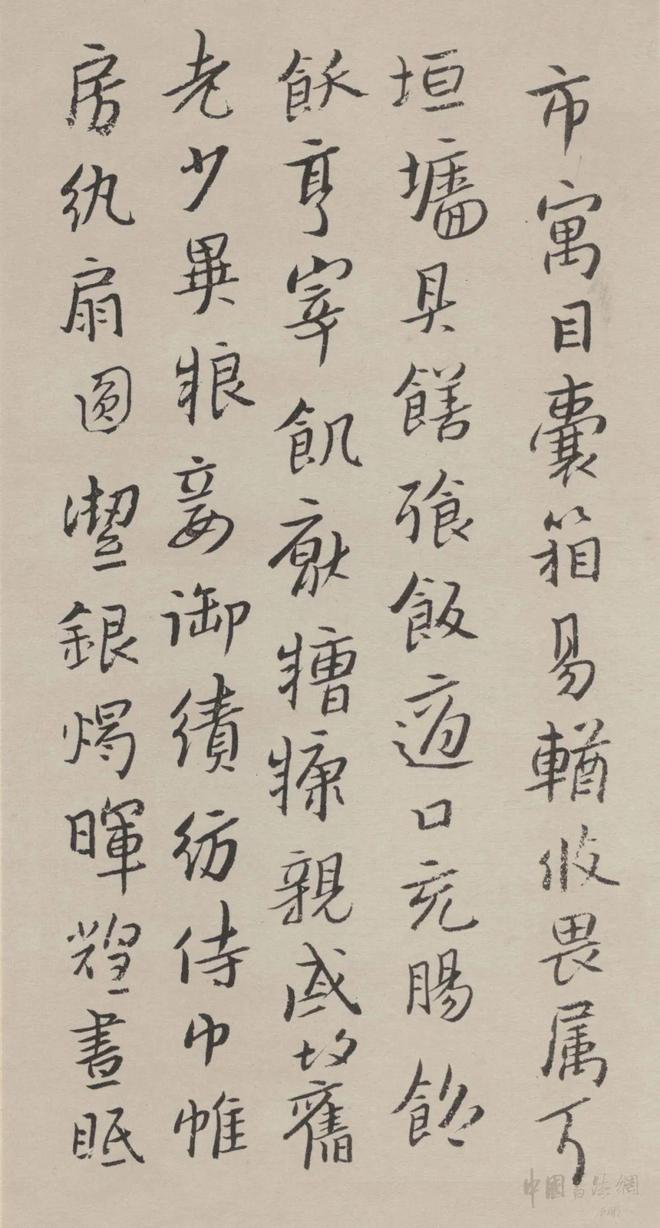 市寓目囊箱易輶攸畏属耳
垣墻具饍飡飯適口充腸飽
飫亨宰飢厭糟糠親戚故舊
老少異粮妾御績紡侍巾帷
房紈扇圓潔銀燭暉煌晝眠
中國書法網